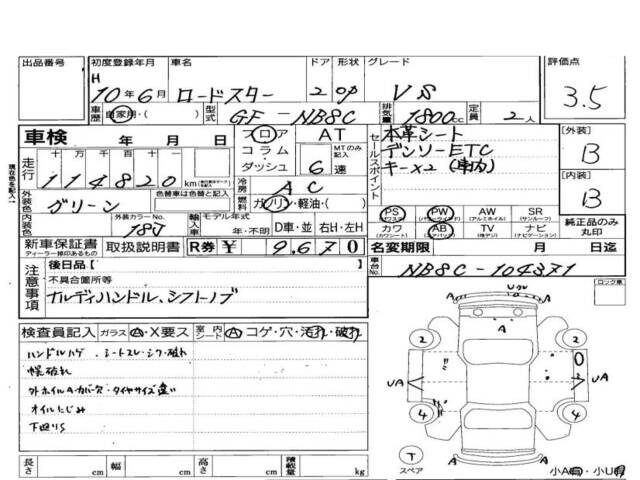 出品番号 初度登録年月 車名 ドア 形状 グレード 評価点
H 10年6月 ロードスター 2 OP VS 3.5
車歴 自家用・( ) 型式 GF-NB8C 排気量 1800cc 定員 2人
車検 年 月 日 フロア AT セールスポイント 本革シート [外装]
走行 十 万 千 百 十 一 コラム・ MTのみ記入 デンソーETC B
114820 km ダッシュ 6速 キー×2(車内)
外装色 グリーン 色替車は色替と記入 冷房 AC [内装]
燃料 ガソリン・軽油・( ) B
内装色 外装カラーNo. 18J 輸入車 モデル年式 年・不明 D車・並 右H・左H
PS (パワーステアリング) PW (パワーウインドウ) AW (アルミホイル) SR (サンルーフ) 純正品のみ丸印
カワ (カワシート) AB (エアバッグ) TV (地デジ) ナビ (ナビゲーション)
新車保証書 ディーラー捺印あるもの 取扱説明書 R券 ¥ 9,670 名変期限 月 日迄
注意事項 後日品[ ] 車台No. NB8C-104371
不具合箇所等 ロック車
ナルディハンドル、シフトノブ
検査員記入 ガラス A・X要ス 室内シート A コゲ・穴・汚れ・破れ
ハンドルハゲ、シートスレ・シワ・破れ
幌破れ
外ホイルA・カバー欠・タイヤサイズ違い
オイルにじみ
下回りS
A A
2 2
UA UA
4 4
T スペア A A
小A・小U
長さ cm 幅 cm 高さ cm 積載量 kg